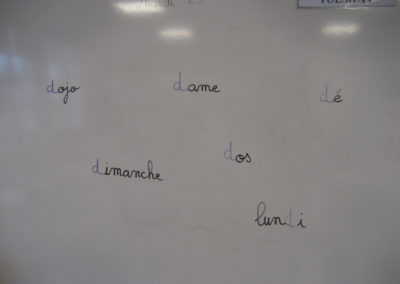 dojo
dame
dé
dimanche
dos
lundi